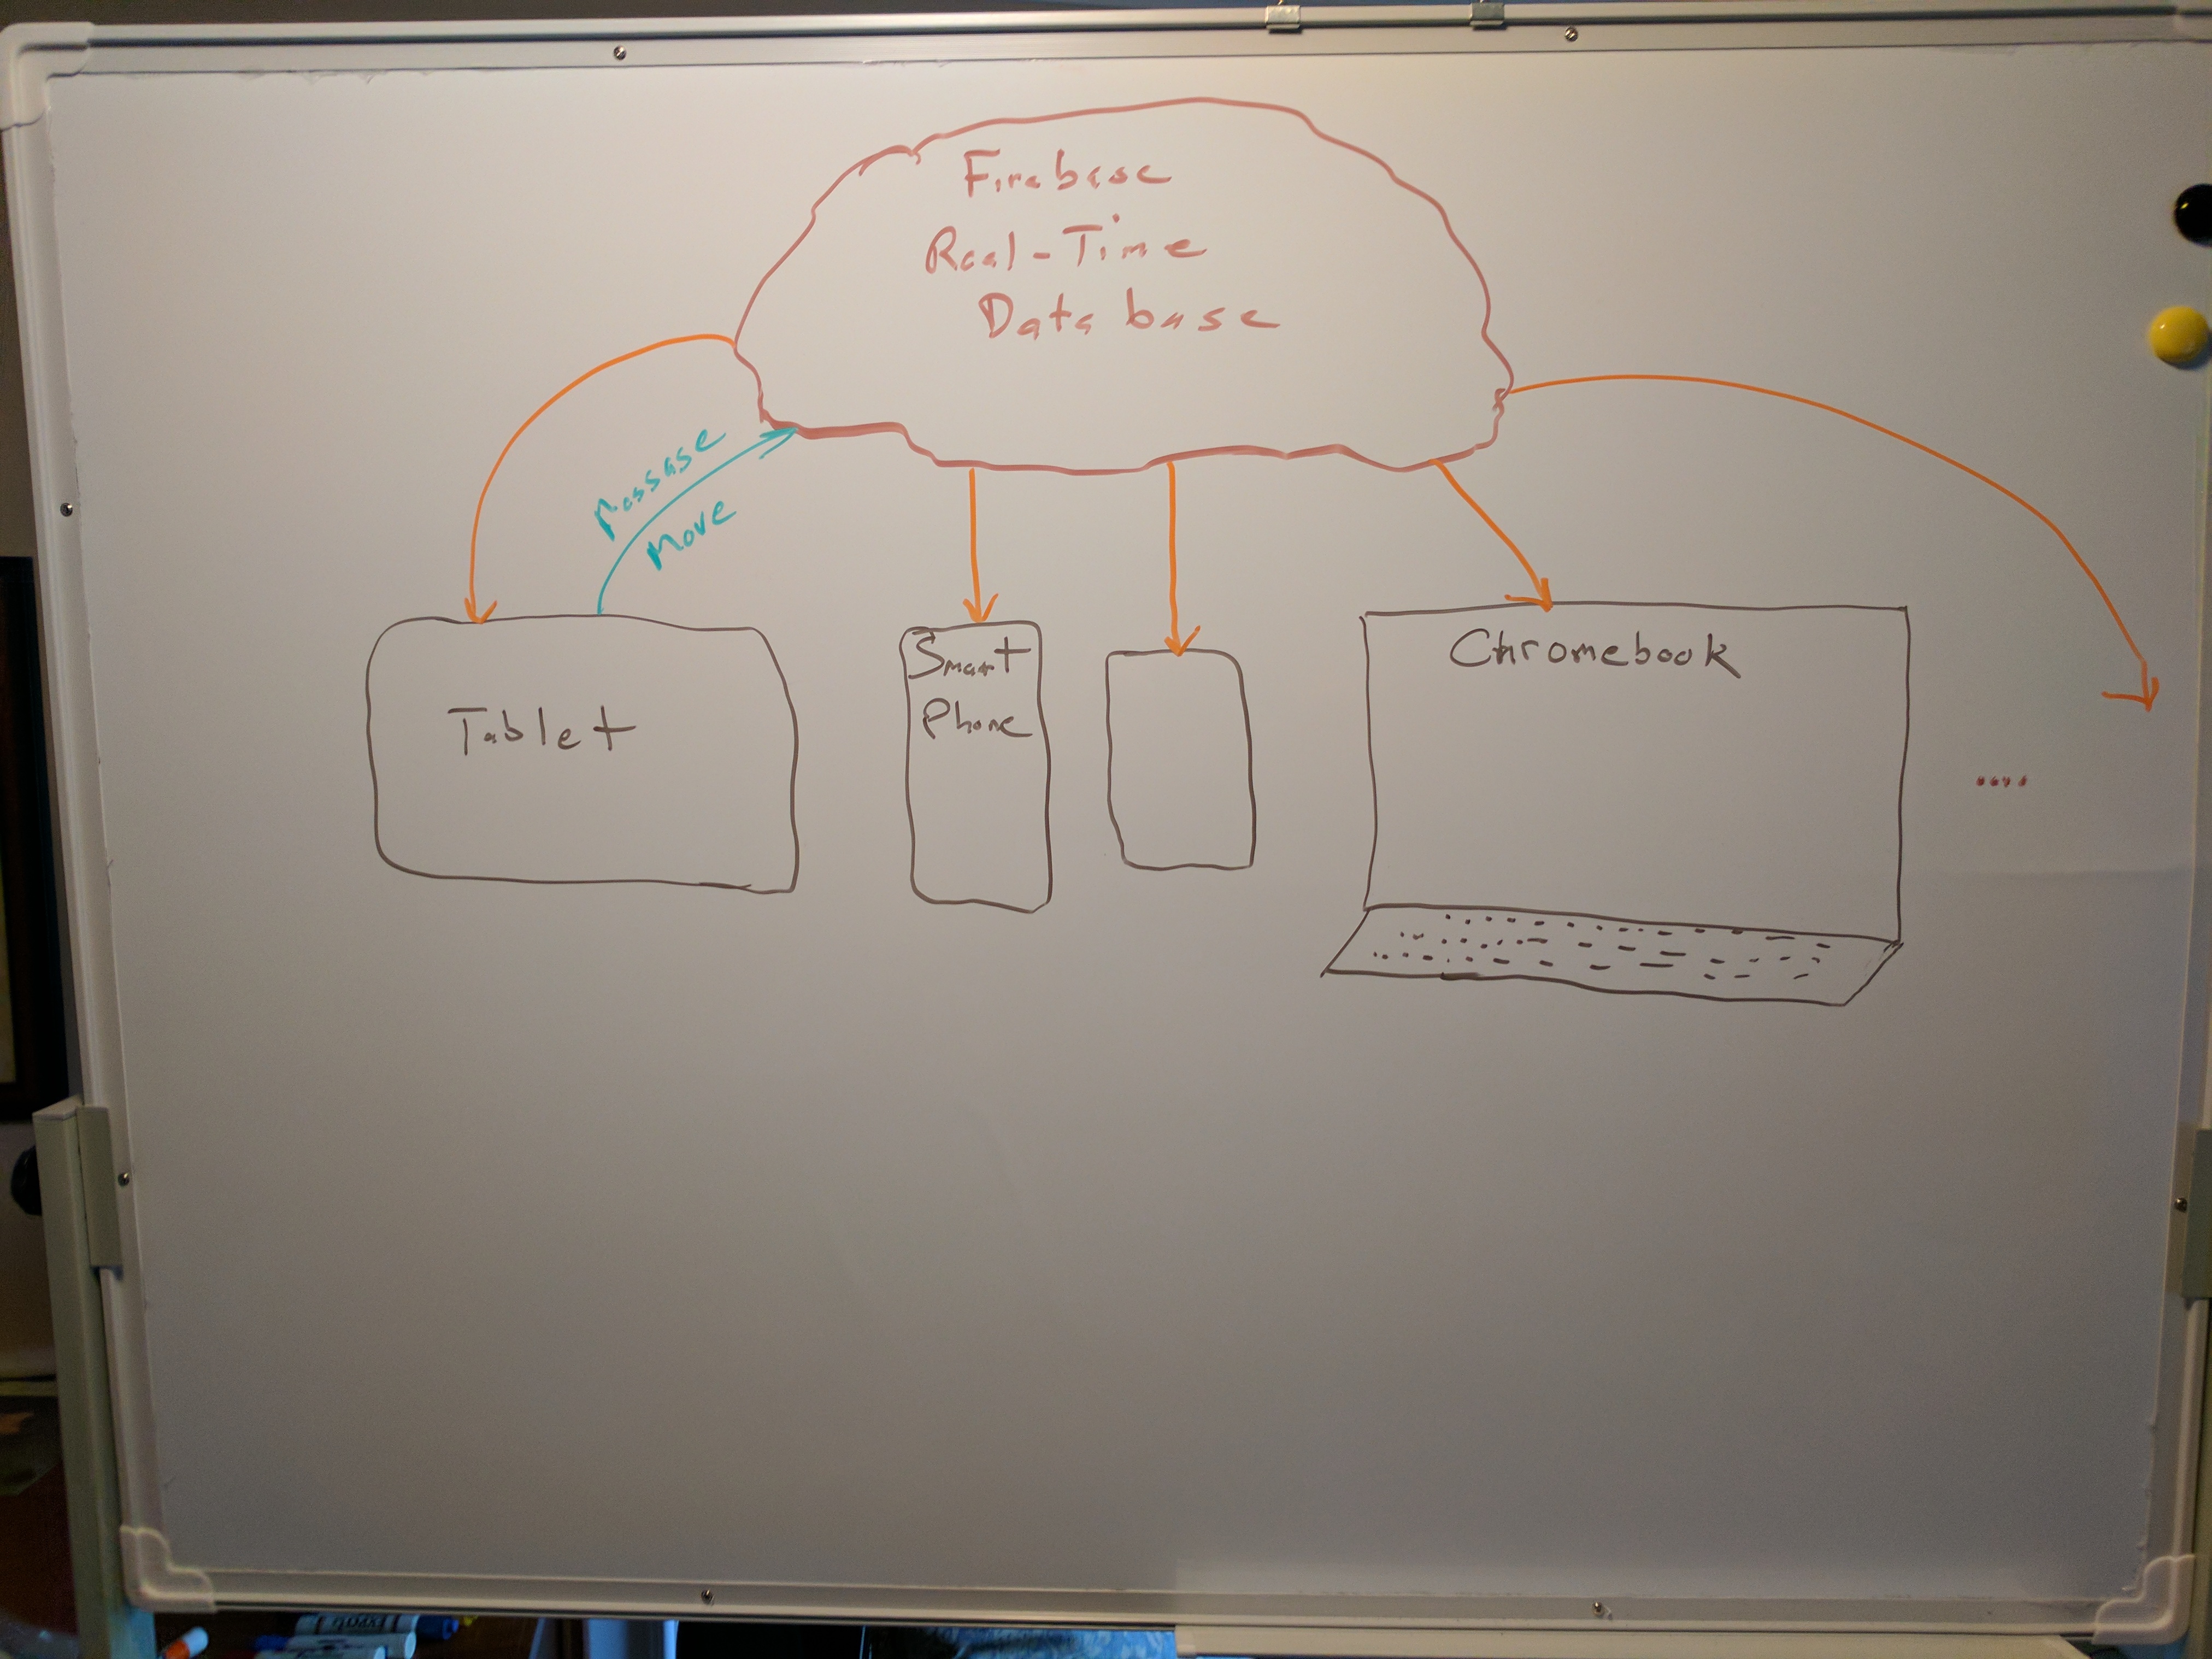 Firebase
Real-Time
Database
Message
Move
Tablet
Smart
Phone
Chromebook
....
EXPO